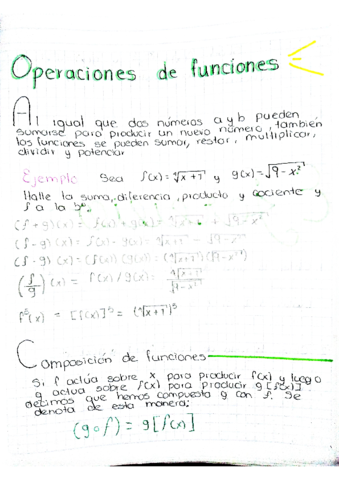 Operaciones de funciones
Al igual que dos números a y b pueden
sumarse para producir un nuevo número, también
las funciones se pueden sumar, restar, multiplicar,
dividir y potenciar
Ejemplo Sea f(x)=⁴√x+1 y g(x)=√9-x²
Halle la suma, diferencia, producto y cociente y
f a la
(f+g)(x) = f(x)+g(x) = ⁴√x+1 + √9-x²
(f-g)(x) = f(x)-g(x) = ⁴√x+1 - √9-x²
(f·g)(x) = f(x)·g(x) = (⁴√x+1)(√9-x²)
(f/g)(x) = f(x)/g(x) = ⁴√x+1/√9-x²
f⁵(x) = [f(x)]⁵ = (⁴√x+1)⁵
Composición de funciones
Si f actúa sobre x para producir f(x) y luego
g actua sobre f(x) para producir g[f(x)]
decimos que hemos compuesta g con f. Se
denota de esta manera:
(g∘f) = g[f(x)]